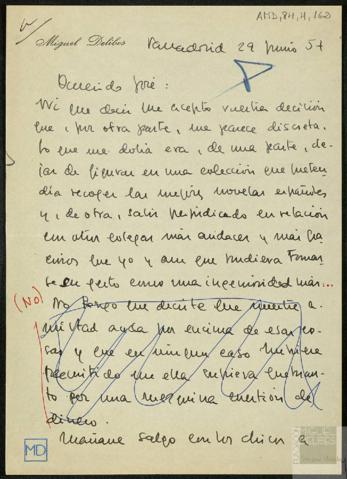 AMD,84,4,162
Miguel Delibes
Valladolid 29 junio 57
Querido José:
Ni que decir que acepto vuestra decisión
que, por otra parte, me parece discreta.
Lo que me dolía era, de una parte, de-
jar de figurar en una colección que preten-
día recoger las mejores novelas españolas
y, de otra, salir perjudicado en relación
con otros colegas más audaces y más
que yo y aun que pudiera tomar-
se mi gesto como una ingenuidad más...
(NO)
No tengo que decirte que nuestra a-
mistad está por encima de esas co-
sas y que en ningún caso hubiera
permitido que ella sufriera quebran-
to por una mezquina cuestión de
dinero.
Mañana salgo con los chicos a
MD